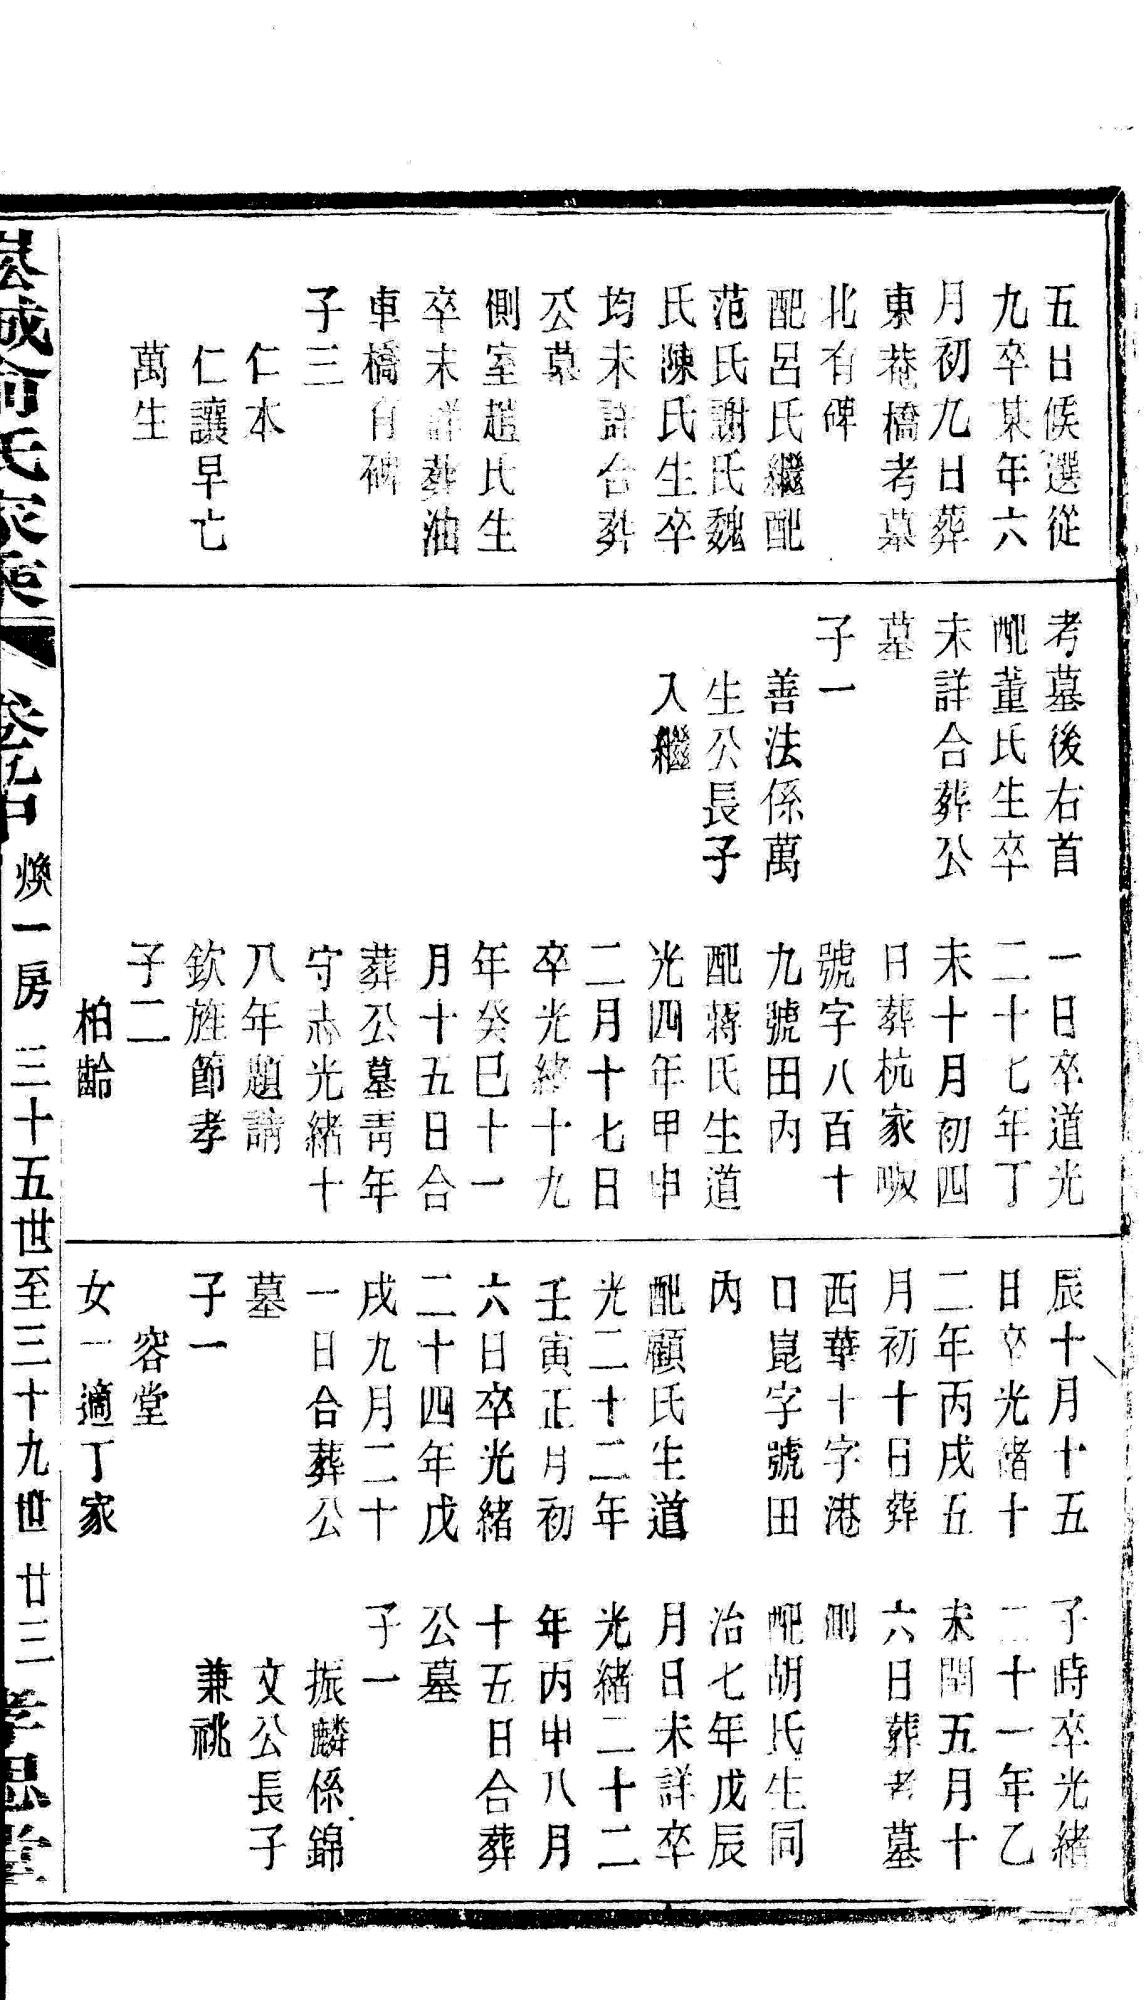 五日候選從
九卒某年六
月初九日葬
東菴橋考墓
北有碑
配呂氏繼配
范氏謝氏魏
氏陳氏生卒
均未詳合葬
公墓
側室趙氏生
卒未詳葬油
車橋有碑
子三
仁本
仁讓早亡
萬生
考墓後右首
配董氏生卒
未詳合葬公
墓
子一
善法係萬
生公長子
入繼
一日卒道光
二十七年丁
未十月初四
日葬杭家㘰
號字八百十
九號田內
配蔣氏生道
光四年甲申
二月十七日
卒光緒十九
年癸巳十一
月十五日合
葬公墓青年
守志光緒十
八年題請
欽旌節孝
子二
柏齡
辰十月十五
日卒光緒十
二年丙戌五
月初十日葬
西華十字港
口崑字號田
內
配顧氏生道
光二十二年
壬寅正月初
六日卒光緒
二十四年戊
戌九月二十
一日合葬公
墓
子一
容堂
女一適丁家
子時卒光緒
二十一年乙
未閏五月十
六日葬考墓
側
配胡氏生同
治七年戊辰
月日未詳卒
光緒二十二
年丙申八月
十五日合葬
公墓
子一
振麟係錦
文公長子
兼祧
俞氏家乘 卷九中 煥一房 三十五世至三十九世 廿三 孝思堂